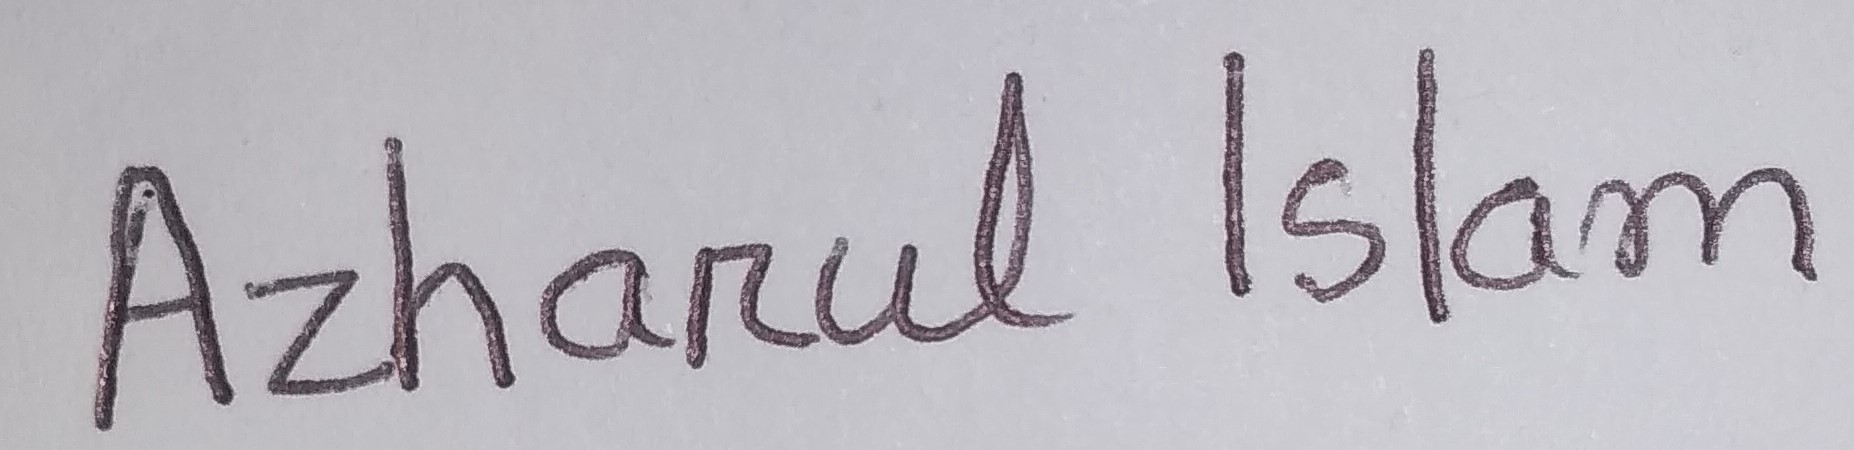 Azharul Islam